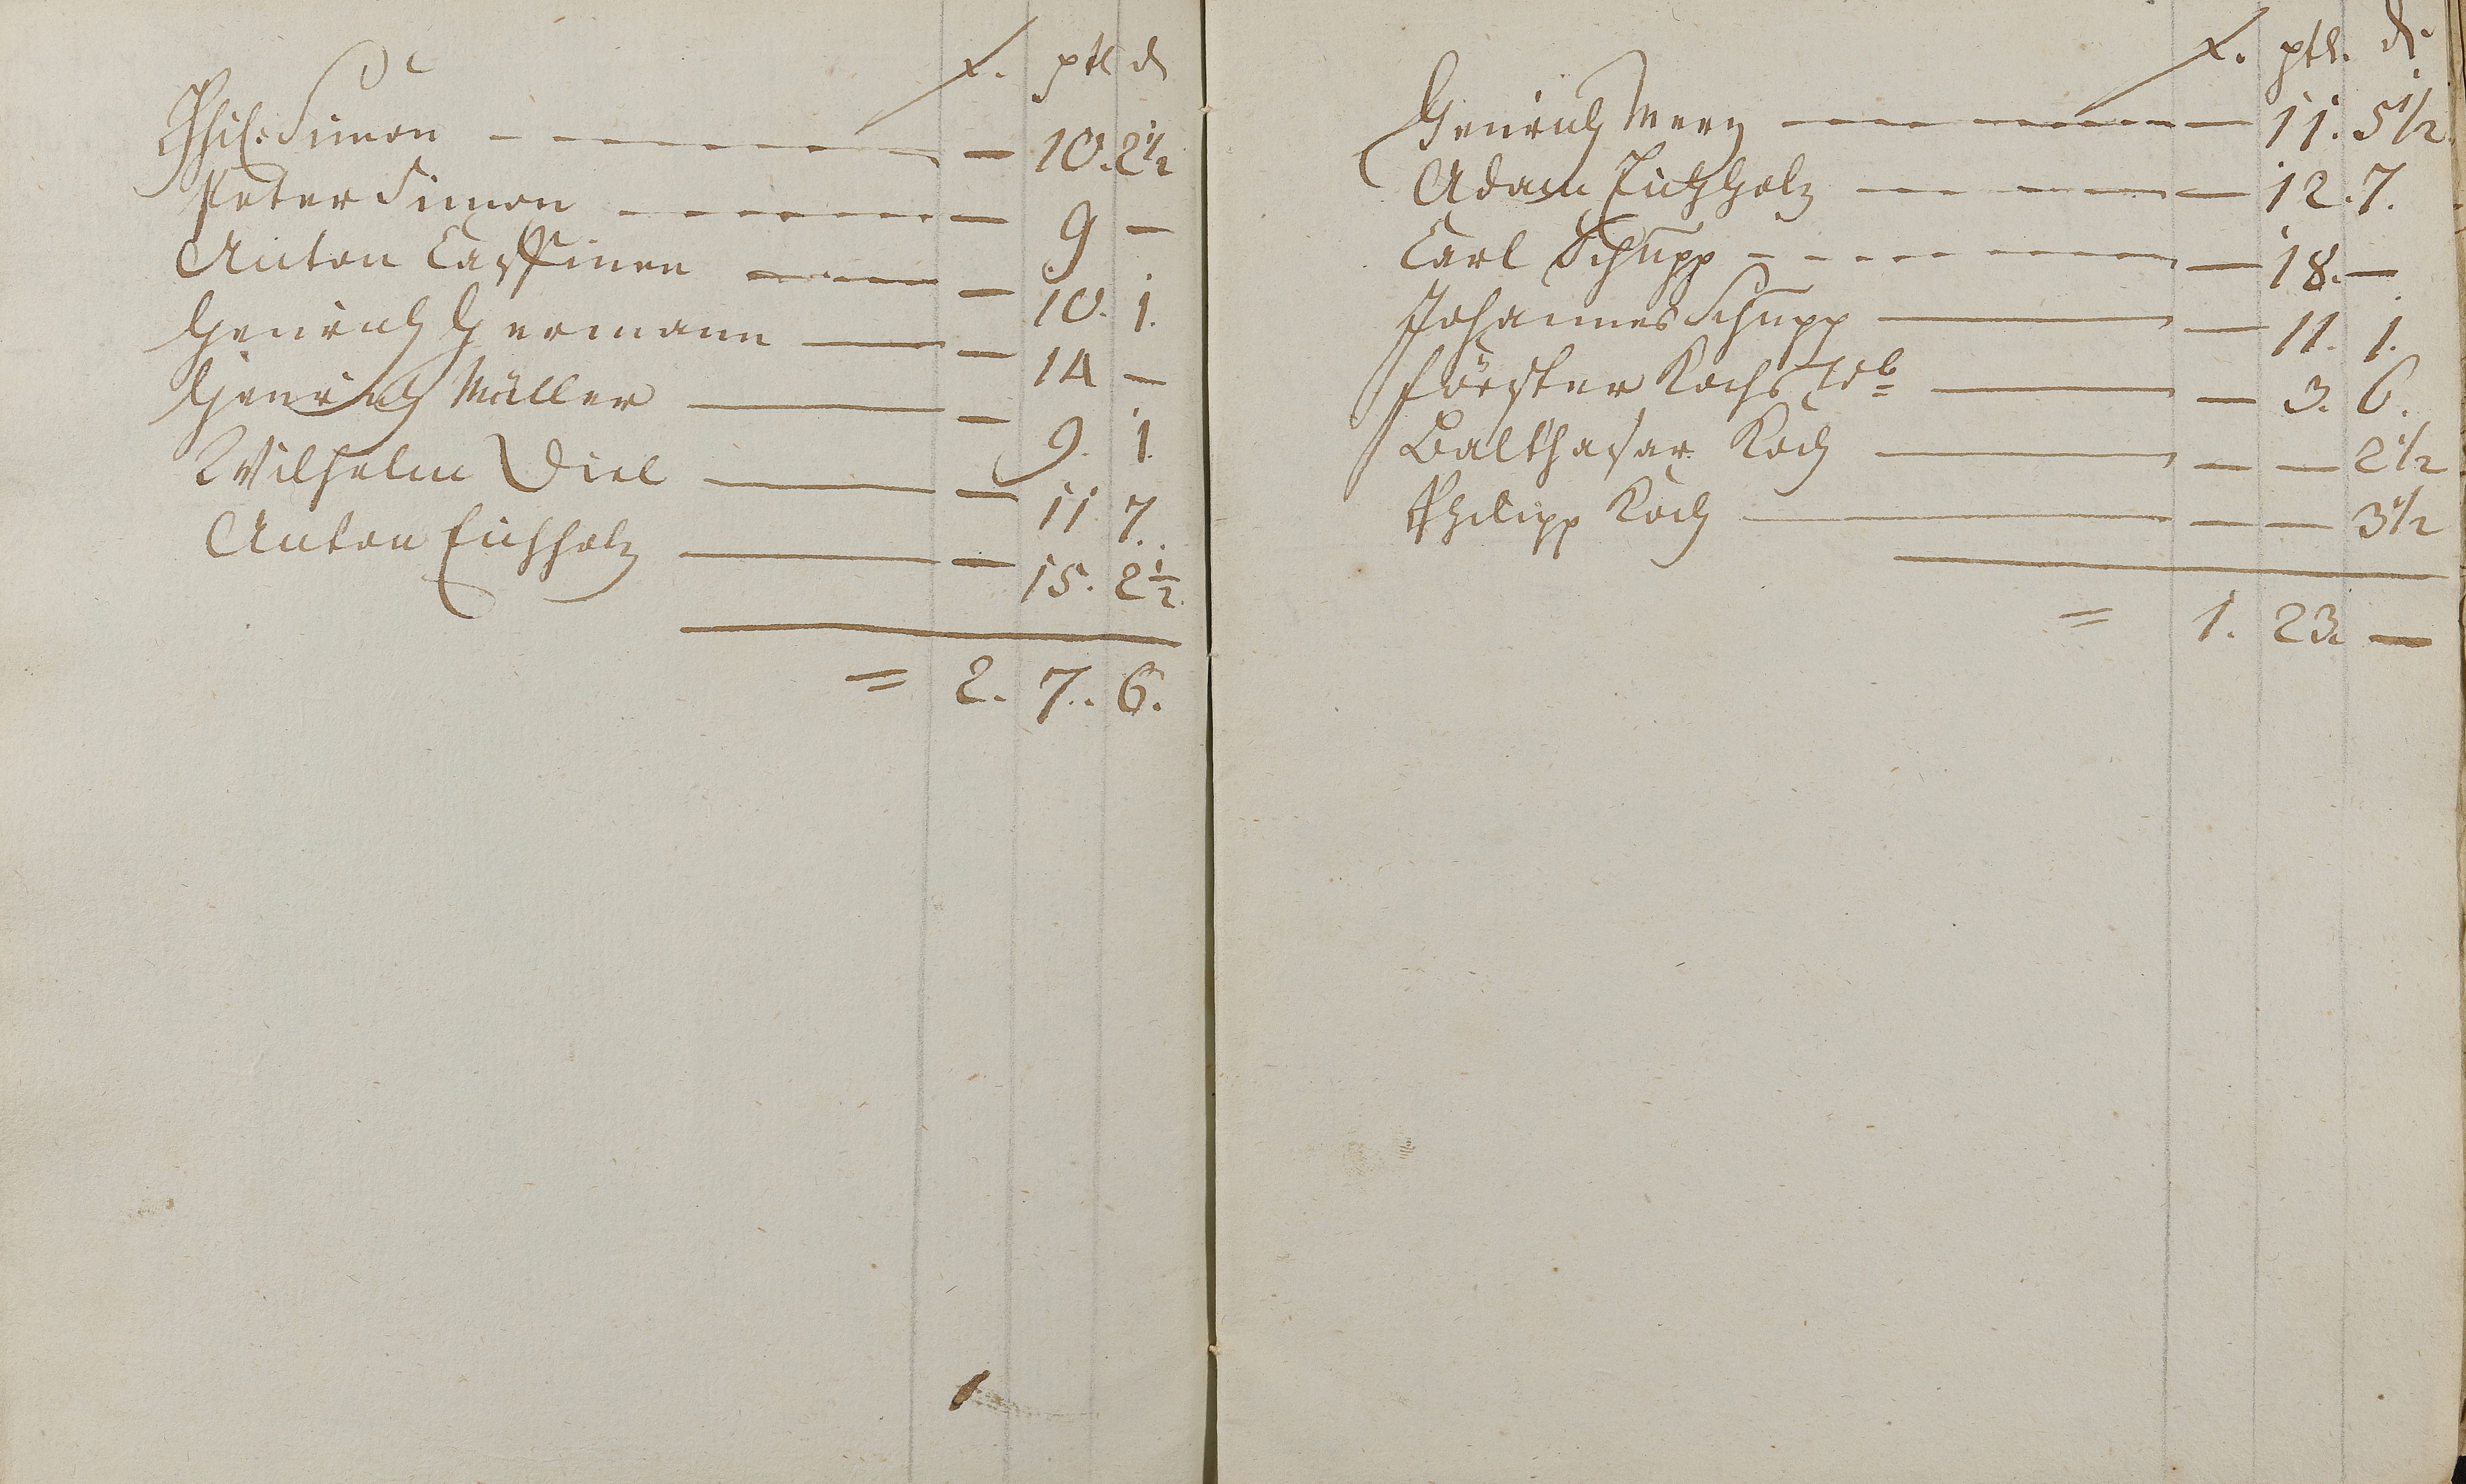 x. ptl d
Phil: Simon — 10. 2 1/2
Peter Simon — 9 —
Anton — 10. 1.
Henrich Hermann — 14 —
Henrich Müller — 9. 1.
Wilhelm Diel — 11 7.
Anton Eichholz — 15. 2 1/2
= 2. 7. 6.
x. ptl. d.
Henrich Merz — 11. 5 1/2
Adam Eichholz — 12. 7.
Carl Schupp — 18. —
Johannes Schupp — 11. 1.
Förster Kochs — 3. 6.
Balthasar Koch — — 2 1/2
Philipp Koch — — 3 1/2
= 1. 23. —